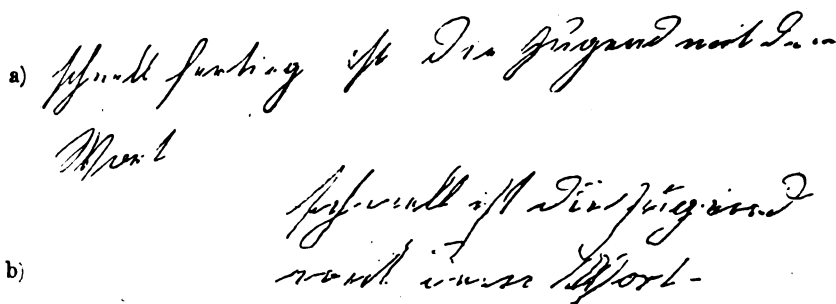 a) schnell fertig ist die Jugend mit dem
Wort
schnell ist die Jugend
b) mit Wort